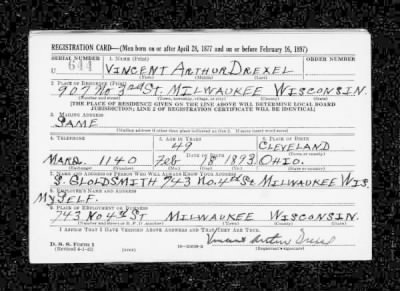 REGISTRATION CARD—(Men born on or after April 28, 1877 and on or before February 16, 1897)
SERIAL NUMBER 1. NAME (Print) ORDER NUMBER
U 644 VINCENT ARTHUR DREXEL
(First) (Middle) (Last)
2. PLACE OF RESIDENCE (Print)
907 No 3rd ST. MILWAUKEE WISCONSIN.
(Number and street) (Town, township, village, or city) (County) (State)
[THE PLACE OF RESIDENCE GIVEN ON THE LINE ABOVE WILL DETERMINE LOCAL BOARD
JURISDICTION; LINE 2 OF REGISTRATION CERTIFICATE WILL BE IDENTICAL]
3. MAILING ADDRESS
SAME
[Mailing address if other than place indicated on line 2. If same insert word same]
4. TELEPHONE 5. AGE IN YEARS 6. PLACE OF BIRTH
49 CLEVELAND
DATE OF BIRTH (Town or county)
MARQ 1140 Feb 18 1893 OHIO.
(Exchange) (Number) (Mo.) (Day) (Yr.) (State or country)
7. NAME AND ADDRESS OF PERSON WHO WILL ALWAYS KNOW YOUR ADDRESS
S. GLOLDSMITH 743 NO. 4th St MILWAUKEE WIS.
8. EMPLOYER'S NAME AND ADDRESS
MYSELF.
9. PLACE OF EMPLOYMENT OR BUSINESS
743 NO 4th St MILWAUKEE WISCONSIN.
(Number and street or R. F. D. number) (Town) (County) (State)
I AFFIRM THAT I HAVE VERIFIED ABOVE ANSWERS AND THAT THEY ARE TRUE.
D. S. S. Form 1
(Revised 4-1-42) (over) Vincent Arthur Drexel